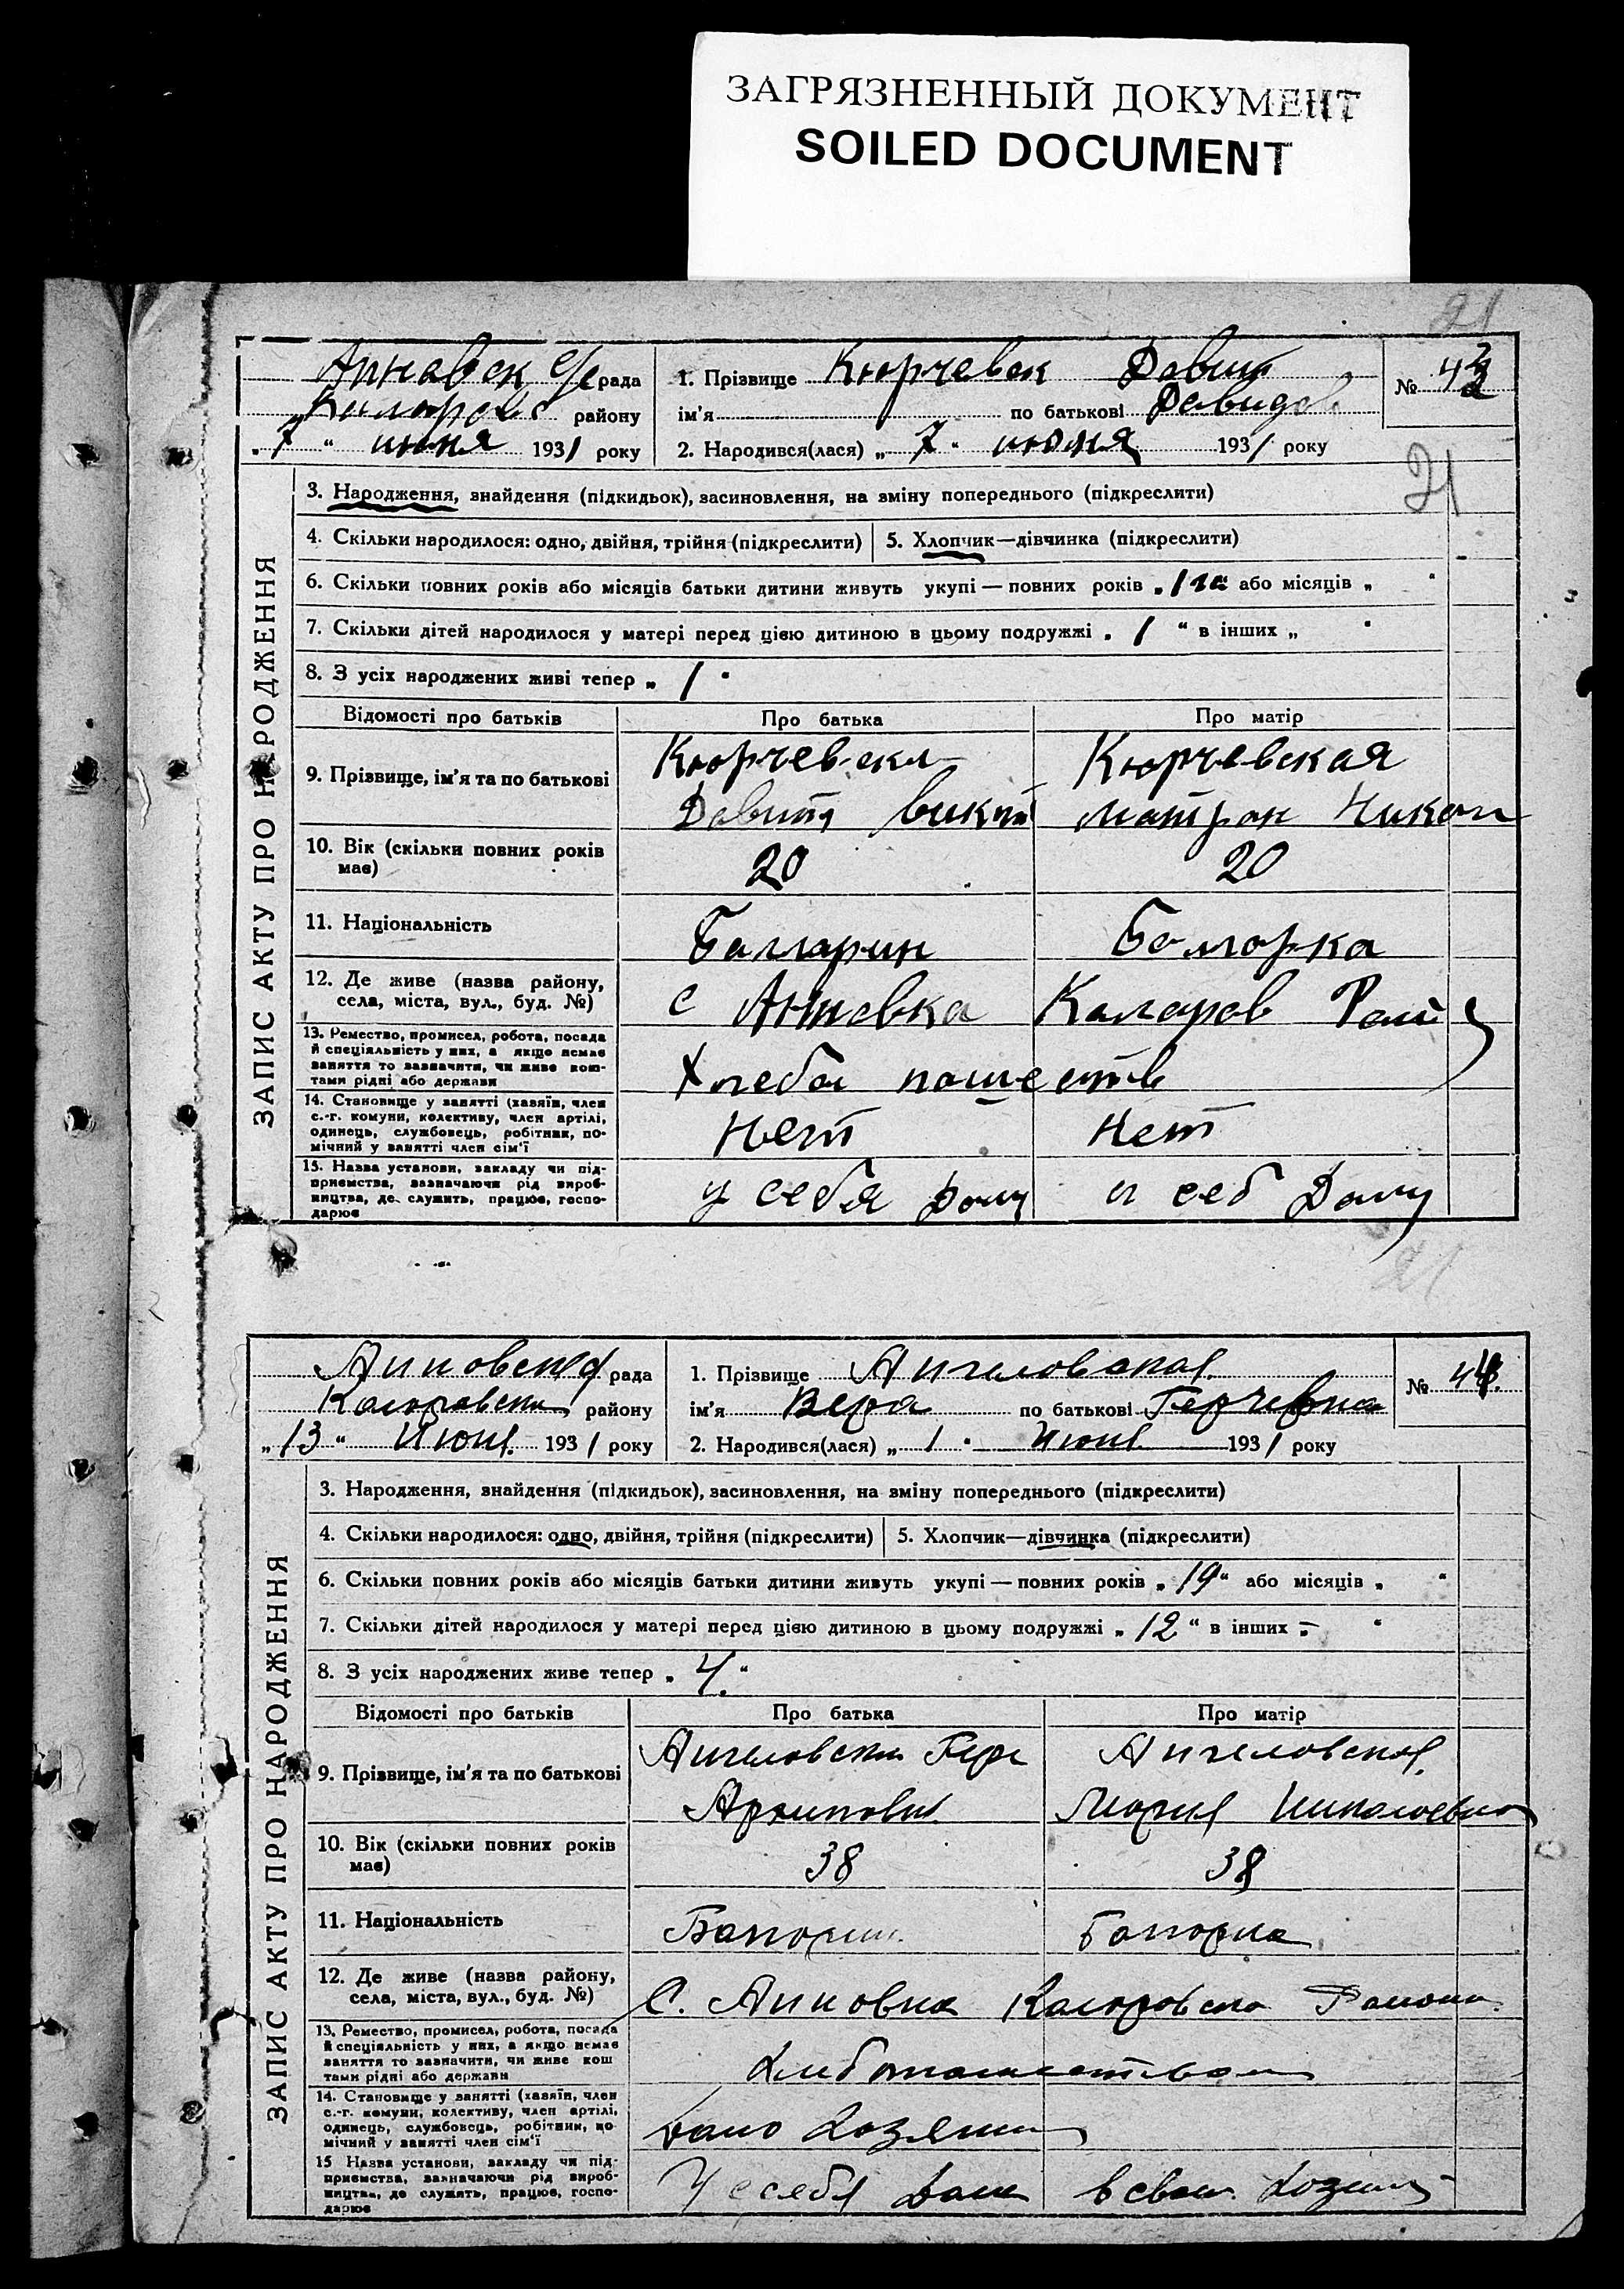 ЗАГРЯЗНЕННЫЙ ДОКУМЕНТ
SOILED DOCUMENT
21
рада
району
„7“ июня 1931 року
1. Прізвище Кюрчевск Давит
ім'я по батькові Давидо
2. Народився(лася) „7“ июня 1931 року
№ 43
21
ЗАПИС АКТУ ПРО НАРОДЖЕННЯ
3. Народження, знайдення (підкидьок), засиновлення, на зміну попереднього (підкреслити)
4. Скільки народилося: одно, двійня, трійня (підкреслити)
5. Хлопчик—дівчинка (підкреслити)
6. Скільки повних років або місяців батьки дитини живуть укупі — повних років „1 або місяців „ “
7. Скільки дітей народилося у матері перед цією дитиною в цьому подружжі „1“ в інших „ “
8. З усіх народжених живі тепер „1“
Відомості про батьків Про батька Про матір
9. Прізвище, ім'я та по батькові
Кюрчевски Кюрчевская
Давит Викт Матрон Никол
10. Вік (скільки повних років має) 20 20
11. Національність Балгарин Болгорка
12. Де живе (назва району, села, міста, вул., буд. №)
с Анновка Коларов Рай
13. Ремество, промисел, робота, посада й спеціальність у них, а якщо немає заняття то зазначити, чи живе коштами рідні або держави
14. Становище у занятті (хазяїн, член с.-г. комуни, колективу, член артілі, одинець, службовець, робітник, помічний у занятті член сім'ї
Нет Нет
15. Назва установи, закладу чи підприємства, зазначаючи рід виробництва, де служить, працює, господарює
у себя Дому и себ Дому
21
рада
району
„13“ Июня 1931 року
1. Прізвище Ангеловская
ім'я Вера по батькові Герчевна
2. Народився(лася) „1“ Июня 1931 року
№ 44
ЗАПИС АКТУ ПРО НАРОДЖЕННЯ
3. Народження, знайдення (підкидьок), засиновлення, на зміну попереднього (підкреслити)
4. Скільки народилося: одно, двійня, трійня (підкреслити)
5. Хлопчик—дівчинка (підкреслити)
6. Скільки повних років або місяців батьки дитини живуть укупі — повних років „19“ або місяців „ “
7. Скільки дітей народилося у матері перед цією дитиною в цьому подружжі „12“ в інших „– “
8. З усіх народжених живе тепер „4“
Відомості про батьків Про батька Про матір
9. Прізвище, ім'я та по батькові
Ангеловски Ангеловская
Архипович Мария Николаевна
10. Вік (скільки повних років має) 38 38
11. Національність
12. Де живе (назва району, села, міста, вул., буд. №)
С. Анновка Коларовского Района
13. Ремество, промисел, робота, посада й спеціальність у них, а якщо немає заняття то зазначити, чи живе кош тами рідні або держави
14. Становище у занятті (хазяїн, член с.-г. комуни, колективу, член артілі, одинець, службовець, робітник, помічний у занятті член сім'ї
15 Назва установи, закладу чи підприємства, зазначаючи рід виробництва, де служить, працює, господарює